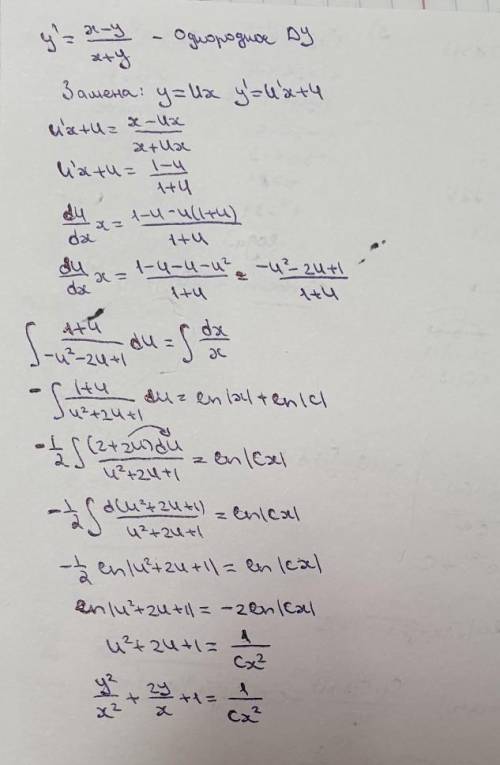 y' = \frac{x-y}{x+y} - Однородное ДУ
Замена: y=ux y'=u'x+u
u'x+u = \frac{x-ux}{x+ux}
u'x+u = \frac{1-u}{1+u}
\frac{du}{dx} x = \frac{1-u-u(1+u)}{1+u}
\frac{du}{dx} x = \frac{1-u-u-u^2}{1+u} = \frac{-u^2-2u+1}{1+u}
\int \frac{1+u}{-u^2-2u+1} du = \int \frac{dx}{x}
-\int \frac{1+u}{u^2+2u+1} du = ln|x|+ln|c|
-\frac{1}{2} \int \frac{(2+2u)du}{u^2+2u+1} = ln|cx|
-\frac{1}{2} \int \frac{d(u^2+2u+1)}{u^2+2u+1} = ln|cx|
-\frac{1}{2} ln|u^2+2u+1| = ln|cx|
ln|u^2+2u+1| = -2ln|cx|
u^2+2u+1 = \frac{1}{cx^2}
\frac{y^2}{x^2} + \frac{2y}{x} + 1 = \frac{1}{cx^2}